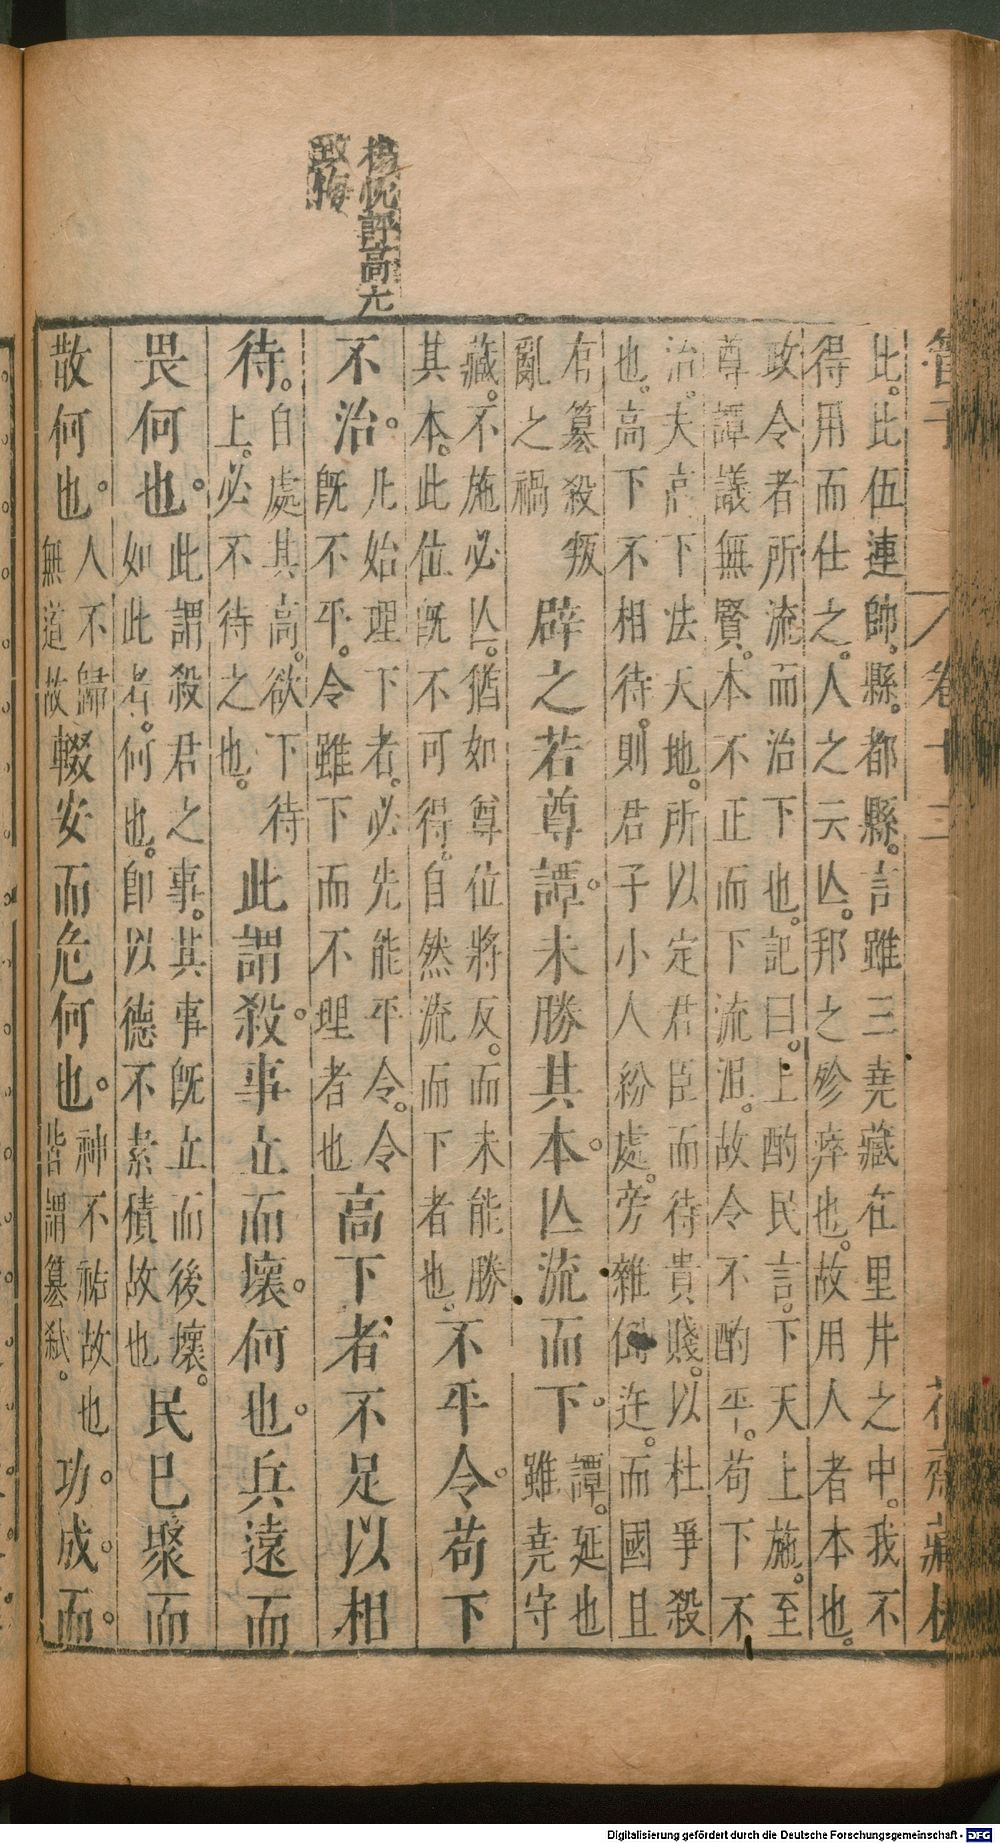 管子 卷十三 花齋藏板
此。此伍連帥、縣。都縣。言雖三堯藏在里井之中。我不
得用而仕之。人之云亾。邦之殄瘁也。故用人者本也。
政令者所流而治下也。記曰。上酌民言。下天上施。至
尊譚議無賢。本不正而下流泹。故令不酌平。苟下不
治。夫高下法天地。所以定君臣而待貴賤。以杜爭殺
也。高下不相待。則君子小人紛處。旁雜倒迕。而國且
有簒殺叛
亂之禍
辟之若尊譚。未勝其本。亾流而下。
譚。延也
雖堯守
藏。不施必亾。猶如尊位將反。而未能勝
其本。此位旣不可得。自然流而下者也。
不平令。苟下
不治。
凡始理下者。必先能平令。令
旣不平。令雖下而不理者也
高下者不足以相
待。
自處其高。欲下待
上。必不待之也。
此謂殺。事立而壞。何也。兵遠而
畏何也。
此謂殺君之事。其事旣立而後壞。
如此者。何也。卽以德不素積故也
民已聚而
散何也。
人不歸
無道故
輟安而危何也。
神不祐故也
皆謂簒弑。
功。成。而。
楊忱評高亢
致悔
Digitalisierung gefördert durch die Deutsche Forschungsgemeinschaft - DFG